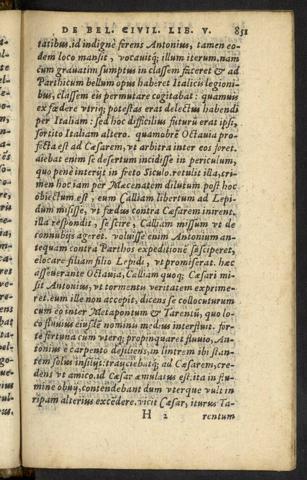 DE BEL. CIVIL. LIB. V. 851
tatibus. id indignè ferens Antonius, tamen eo-
dem loco mansit, vocauitq; illum iterum. nam
cum grauatim sumptus in classem faceret & ad
Parthicum bellum opus haberet Italicis legioni-
bus, classem eū permutare cogitabat: quamuis
ex fœdere vtriq; potestas erat delectus habendi
per Italiam: sed hoc difficilius futurū erat ipsi,
sortito Italiam altero. quamobrē Octauia pro-
fecta est ad Cæsarem, vt arbitra inter eos foret.
aiebat enim se desertum incidisse in periculum,
quo penè interijt in freto Siculo. retulit illa, cri-
men hoc iam per Mæcenatem dilutum post hoc
obiectum est, eum Calliam libertum ad Lepi-
dum misisse, vt fœdus contra Cæsarem inirent.
illa respondit, se scire, Calliam missum vt de
connubijs ageret. voluisse enim Antonium an-
tequam contra Parthos expeditionē susciperet,
elocare filiam filio Lepidi, vt promiserat. hæc
asseuerante Octauia, Calliam quoq; Cæsari mi-
sit Antonius, vt tormentis veritatem exprime-
ret. eum ille non accepit, dicens se collocuturum
cum eo inter Metapontum & Tarentū, quo lo-
co fluuius eiusdē nominis medius interfluit. for-
te fortuna cum vterq; propinquaret fluuio, An-
tonius è carpento desiliens, in lintrem ibi stan-
tem solus insilijt: trayciebatq; ad Cæsarem, cre-
dens vt amico. id Cæsar æmulatus est: ita in flu-
mine obuij, contendebant dum vterque vult in
ripam alterius excedere. vicit Cæsar, iturus Ta-
H 2 rentum